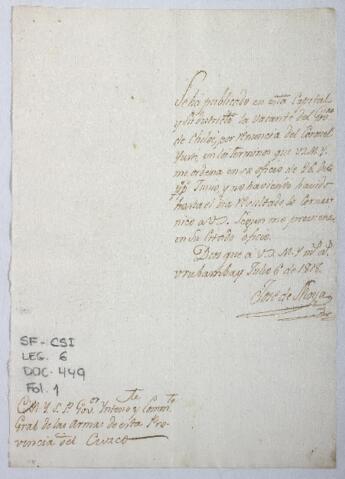 Se ha publicado en esta Capital
y su distrito la vacante del
de Chiloé, por renuncia del Coronel
en los terminos que V.S.M.Y.
me ordena en su oficio de 26 de
pp. Junio, y no haviendo havido
hasta el dia resultado lo comu
nico a V.S. segun me previene
en su citado oficio.
Dios gue a V.S.M.Y. ms. as.
Urubamba y Julio 6 de 1808.
Jose de Moya
SF-CSI
LEG. 6
DOC. 449
Fol. 1
M.Y.S. Gov.or Yntend.te y Com.te
Gral de las Armas de esta Pro-
vincia del Cuzco